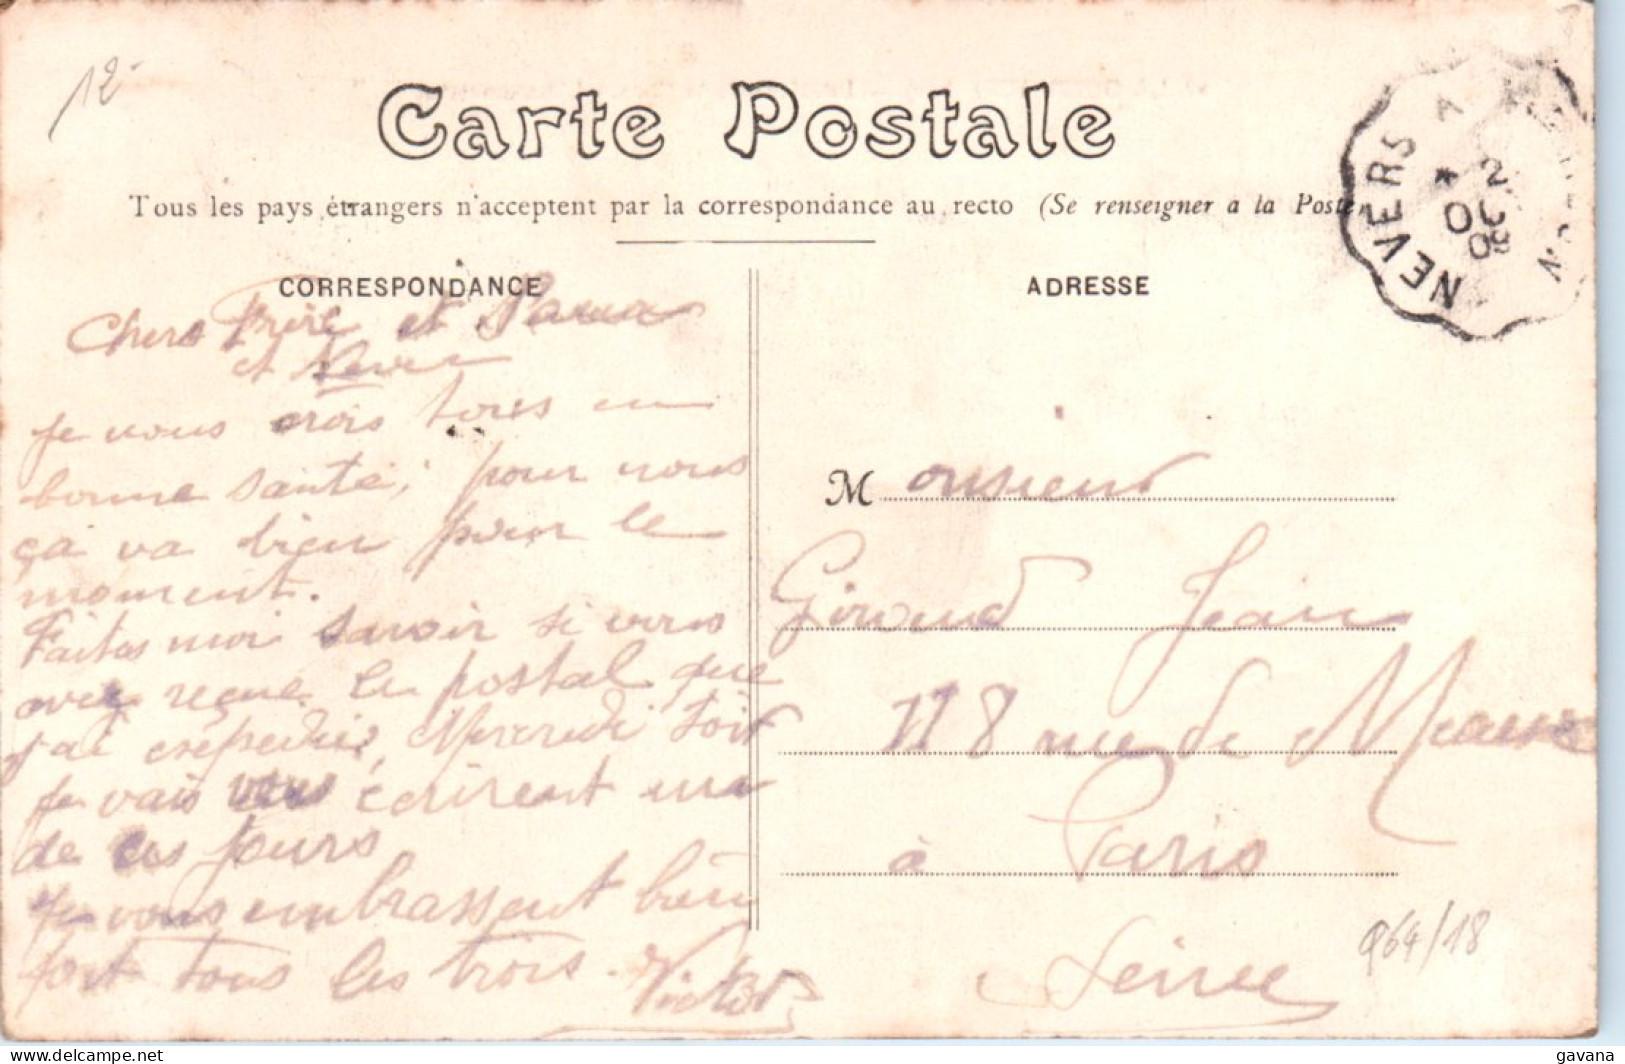 12-
Carte Postale
Tous les pays étrangers n'acceptent par la correspondance au recto (Se renseigner à la Poste
NEVERS
CORRESPONDANCE
Chers Frère et
et
je vous crois tous en
bonne santé; pour nous
ça va bien pour le
moment.
Faites moi savoir si vous
avez reçue la postal que
j'ai Mercredi soir
je vais vous écrirent un
de ces jours
je vous embrassent bien
fort tous les trois. Victor
ADRESSE
Monsieur
Giroud Jean
118 rue de Meaux
à Paris
Seine
Q64/18
gavana
delcampe.net